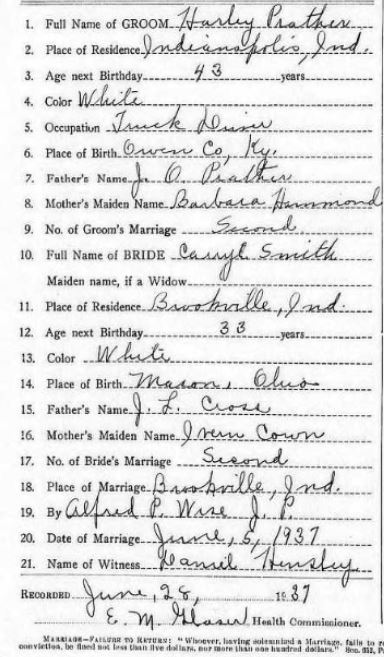 1. Full Name of GROOM Harley Prather
2. Place of Residence Indianapolis, Ind.
3. Age next Birthday 43 years
4. Color White
5. Occupation Truck Driver
6. Place of Birth Owen Co, Ky.
7. Father's Name J. O. Prather
8. Mother's Maiden Name Barbara Hammond
9. No. of Groom's Marriage Second
10. Full Name of BRIDE Carryl Smith
Maiden name, if a Widow
11. Place of Residence Brookville, Ind.
12. Age next Birthday 33 years
13. Color White
14. Place of Birth Mason, Ohio
15. Father's Name J. L. Cross
16. Mother's Maiden Name Ivern Cown
17. No. of Bride's Marriage Second
18. Place of Marriage Brookville, Ind.
19. By Alfred P. Wise J. P.
20. Date of Marriage June, 5, 1937
21. Name of Witness Hensley
RECORDED June, 28, 1937
E. M. Glaser Health Commissioner.
MARRIAGE—FAILURE TO RETURN: "Whoever, having solemnized a Marriage, fails to
conviction, be fined not less than five dollars, nor more than one hundred dollars." Sec. 653,